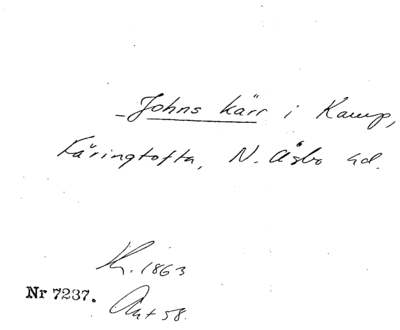 Johns kärr i Kamp,
Färingtofta, N. Åsbo hd.
K. 1863
Nr 7237. Ant 58.